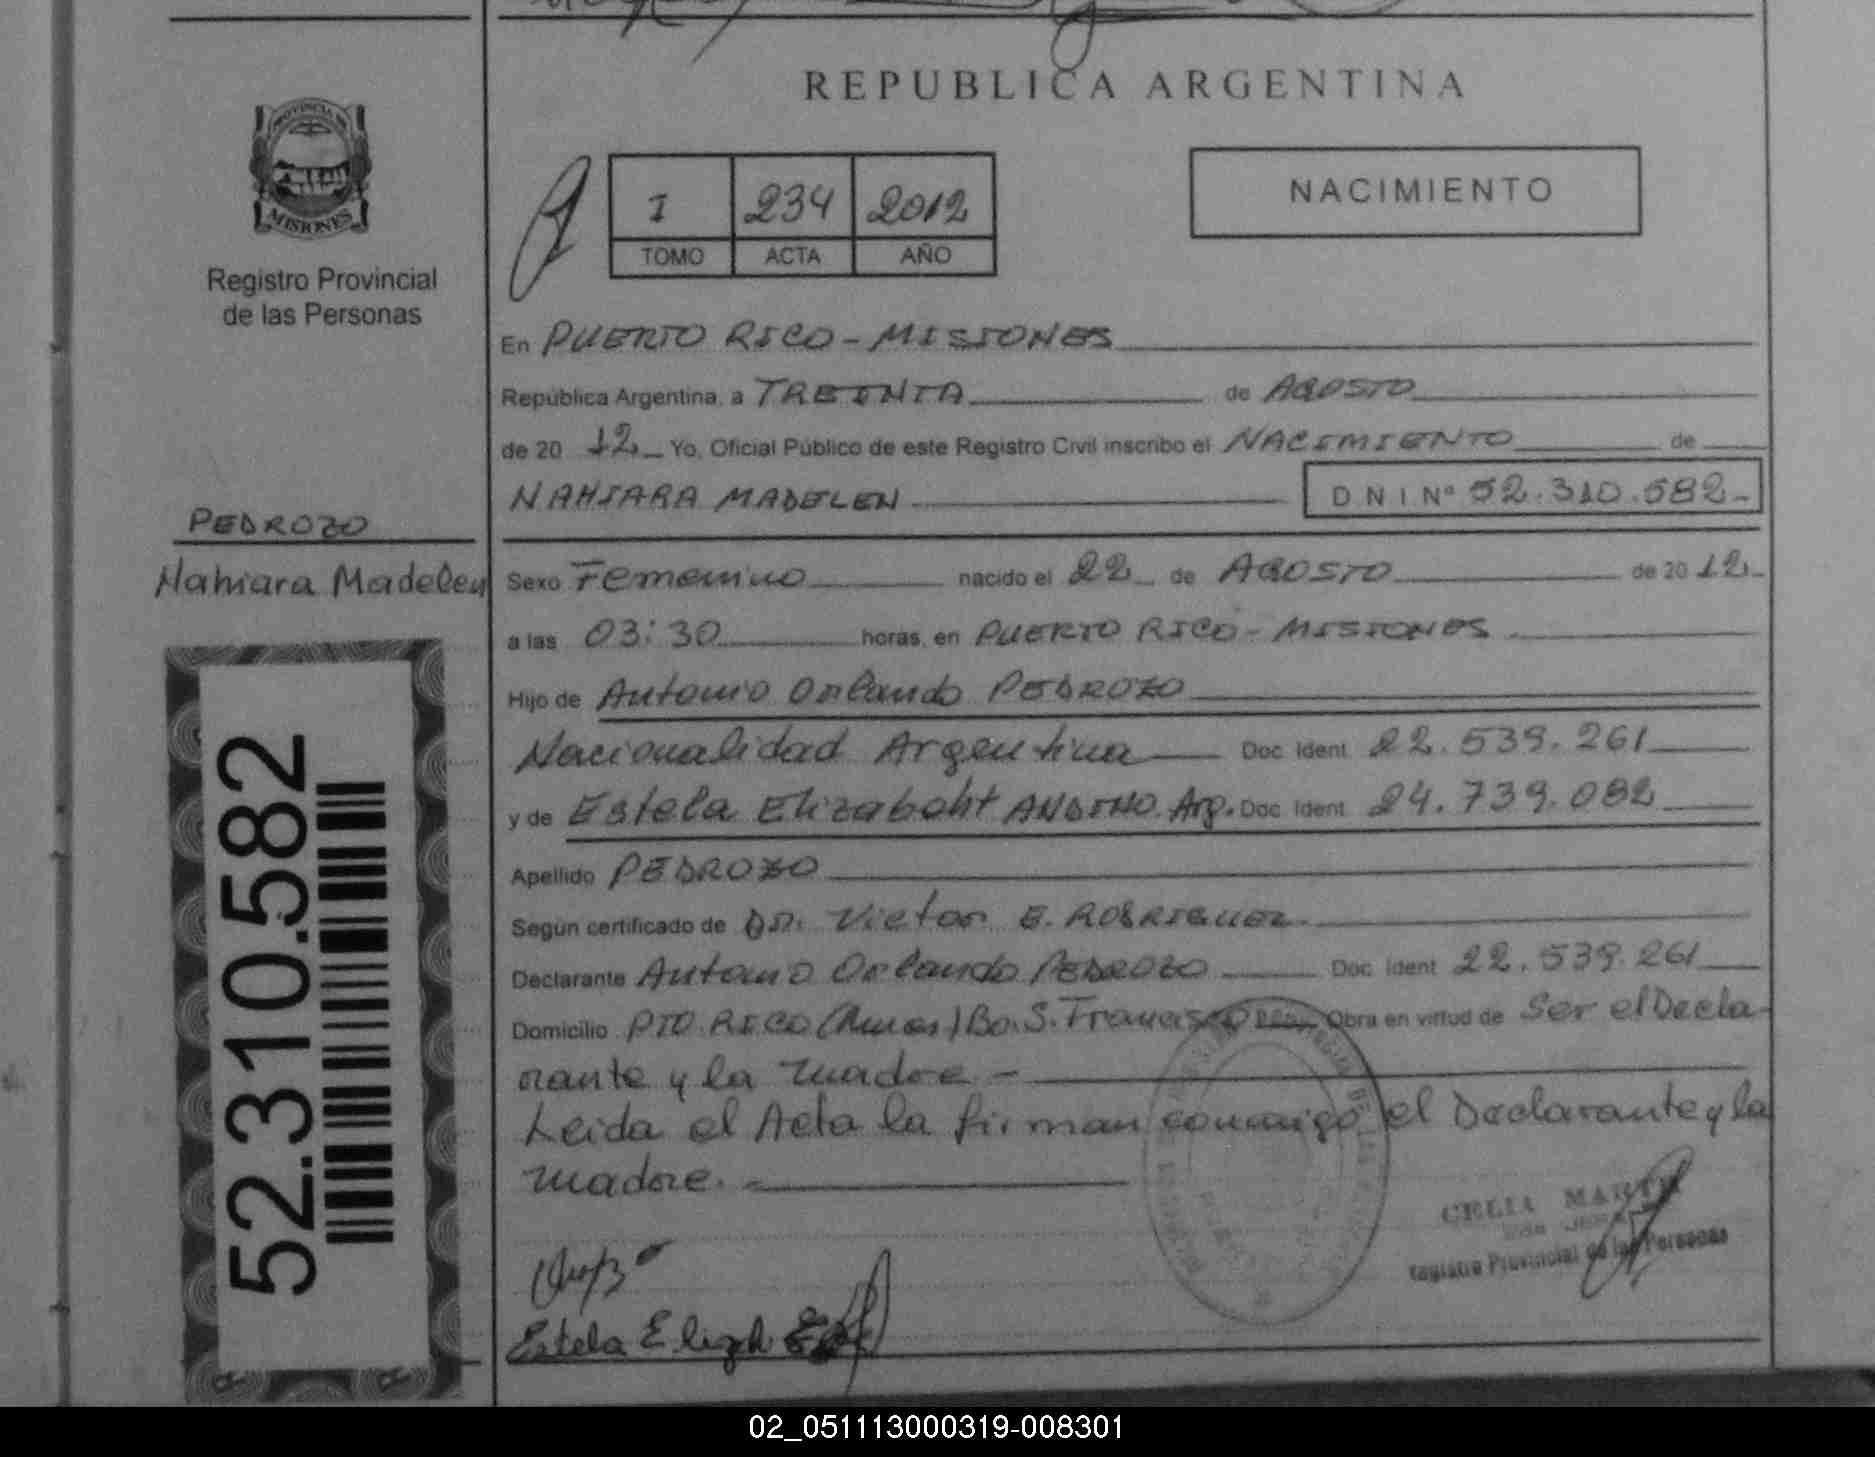 REPUBLICA ARGENTINA
PROVINCIA DE
MISIONES
Registro Provincial
de las Personas
I 234 2012
TOMO ACTA AÑO
NACIMIENTO
En PUERTO RICO - MISIONES
República Argentina, a TREINTA de AGOSTO
de 20 12 Yo, Oficial Público de este Registro Civil inscribo el NACIMIENTO de
NAHIARA MADELEN DNI Nº 52.310.582
PEDROZO
Nahiara Madelen
52.310.582
Sexo Femenino nacido el 22 de AGOSTO de 20 12
a las 03:30 horas, en PUERTO RICO - MISIONES
Hijo de Antonio Orlando PEDROZO
Nacionalidad Argentina Doc Ident 22.539.261
y de Estela Elizabeht ANDINO. Arg. Doc Ident 24.739.082
Apellido PEDROZO
Según certificado de DR. Victor E. RODRIGUEZ
Declarante Antonio Orlando PEDROZO Doc Ident 22.539.261
Domicilio PTO. RICO (Mnes) Bo. S. Francisco Obra en virtud de Ser el Decla-
rante y la madre. -
Leida el Acta la firman conmigo el Declarante y la
madre.
CELIA
Registro Provincial de las Personas
Estela
02_051113000319-008301